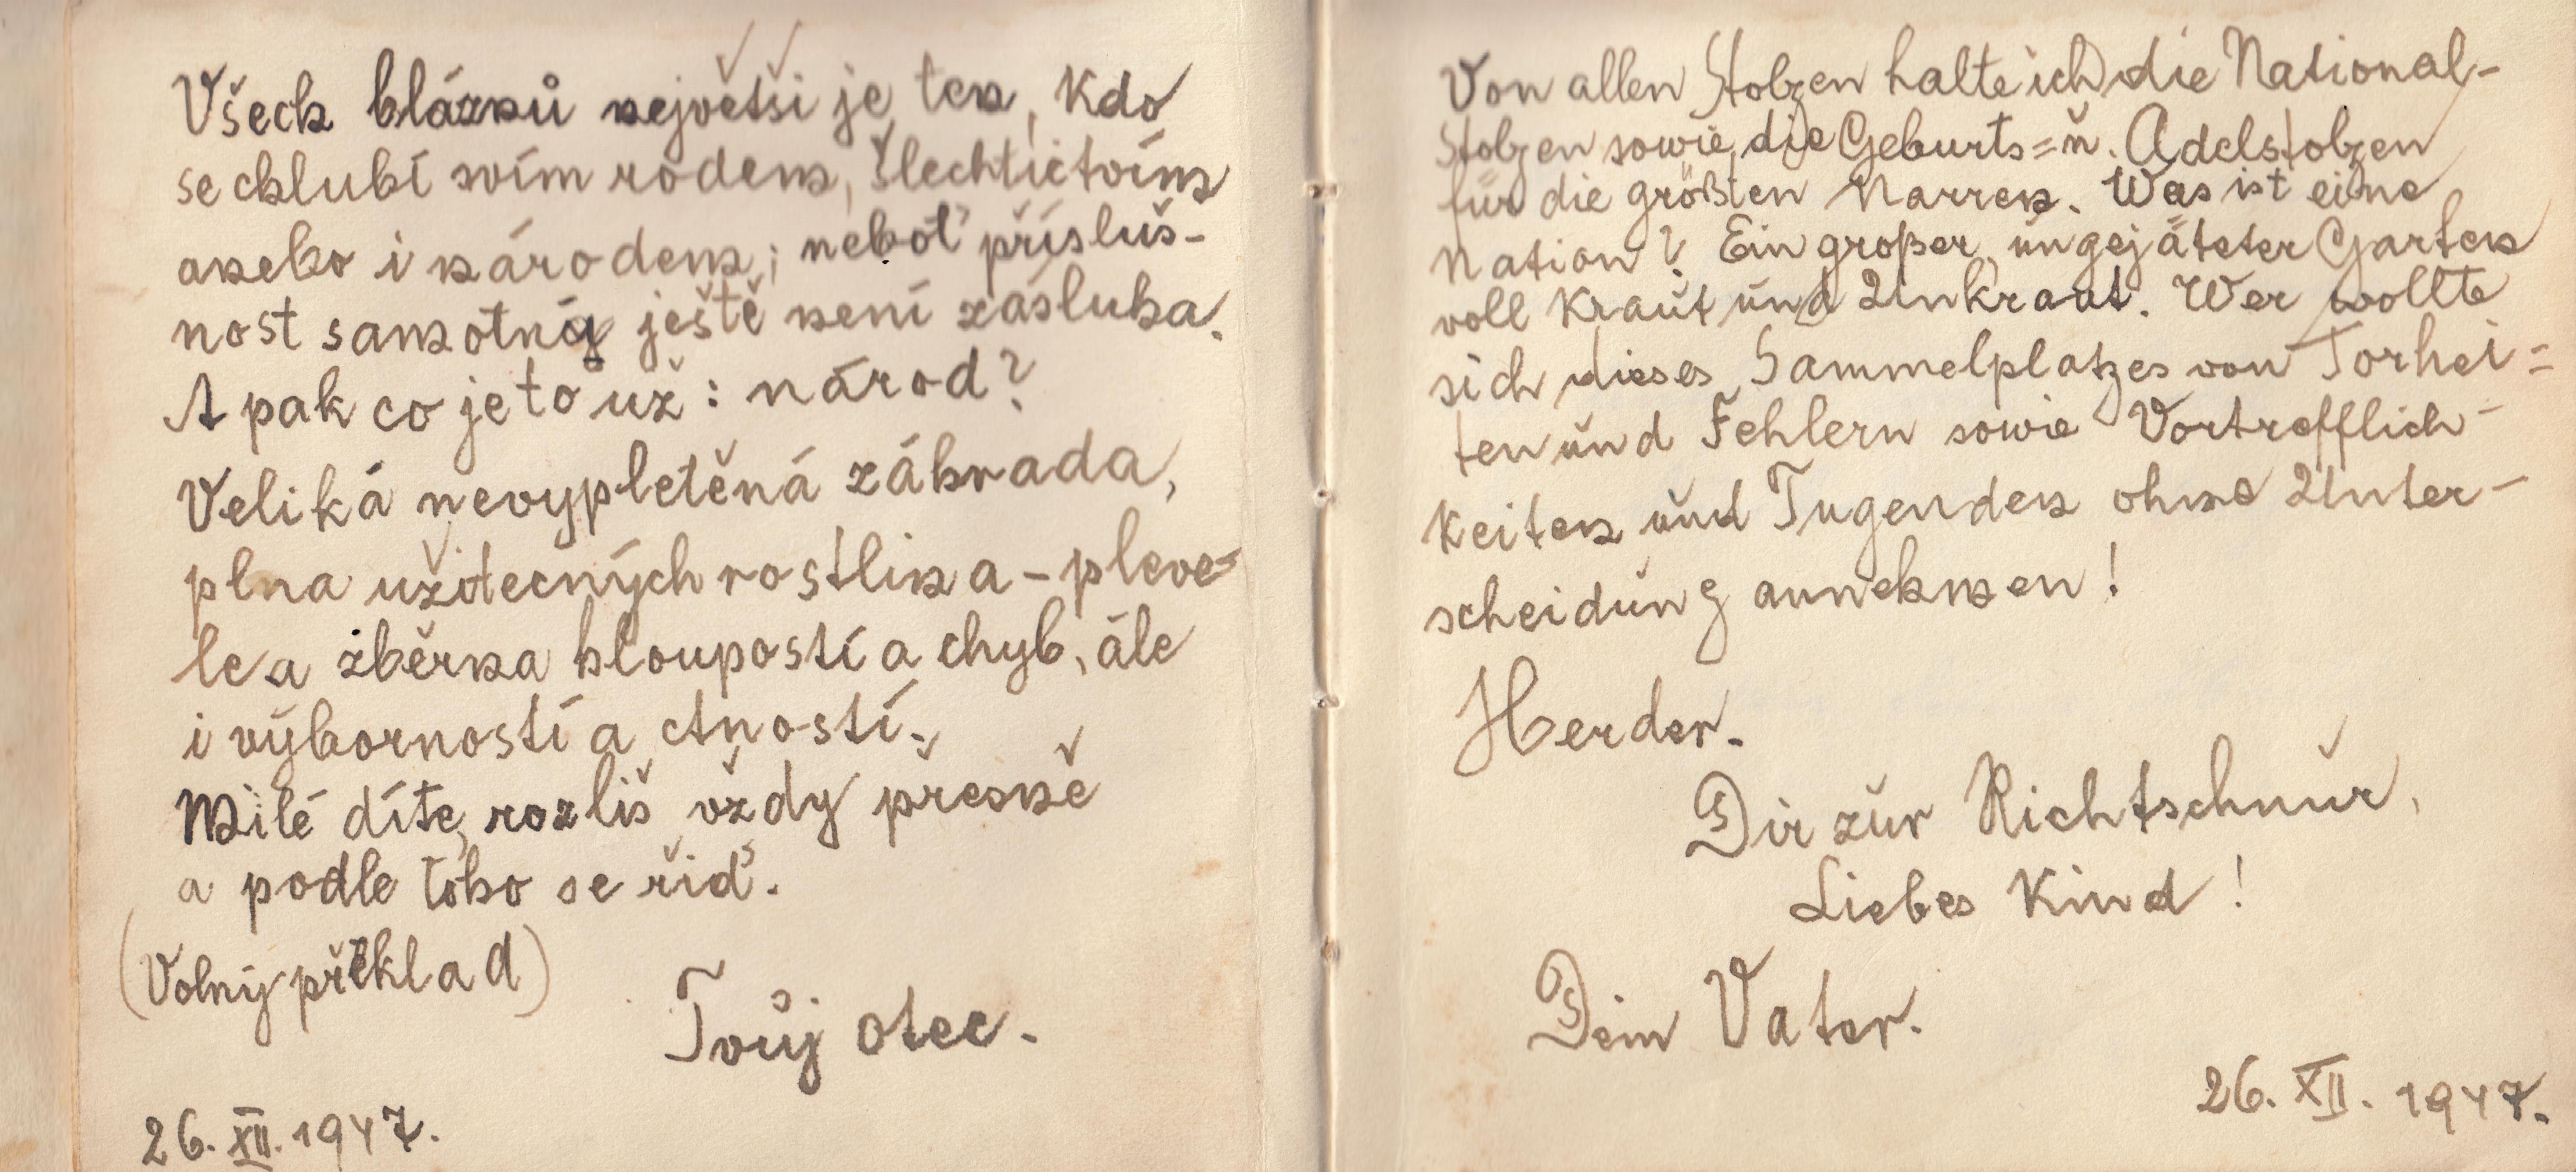 Všech bláznů největší je ten, kdo
se chlubí svím rodem, šlechtictvím
anebo i národem; neboť přísluš-
nost samotná ještě není zásluha.
A pak co je to už: národ?
Veliká nevypletěná záhrada,
plna užitecných rostlin a-pleve-
le a zběrna hloupostí a chyb, ále
i výborností a ctností.
Milé díte, rozliš vždy přesně
a podle toho se řiď.
(Volný překlad)
Tvůj otec.
26. XII. 1947.
Von allen Stolzen halte ich die National-
stolzen sowie die Geburts= u. Adelstolzen
für die größten Narren. Was ist eine
Nation? Ein großer, ungejäteter Garten
voll Kraut und Unkraut. Wer wollte
sich dieses Sammelplatzes von Torhei=
ten und Fehlern sowie Vortrefflich-
keiten und Tugenden ohne Unter-
scheidung annehmen!
Herder.
Dir zur Richtschnur,
Liebes Kind!
Dein Vater.
26. XII. 1947.